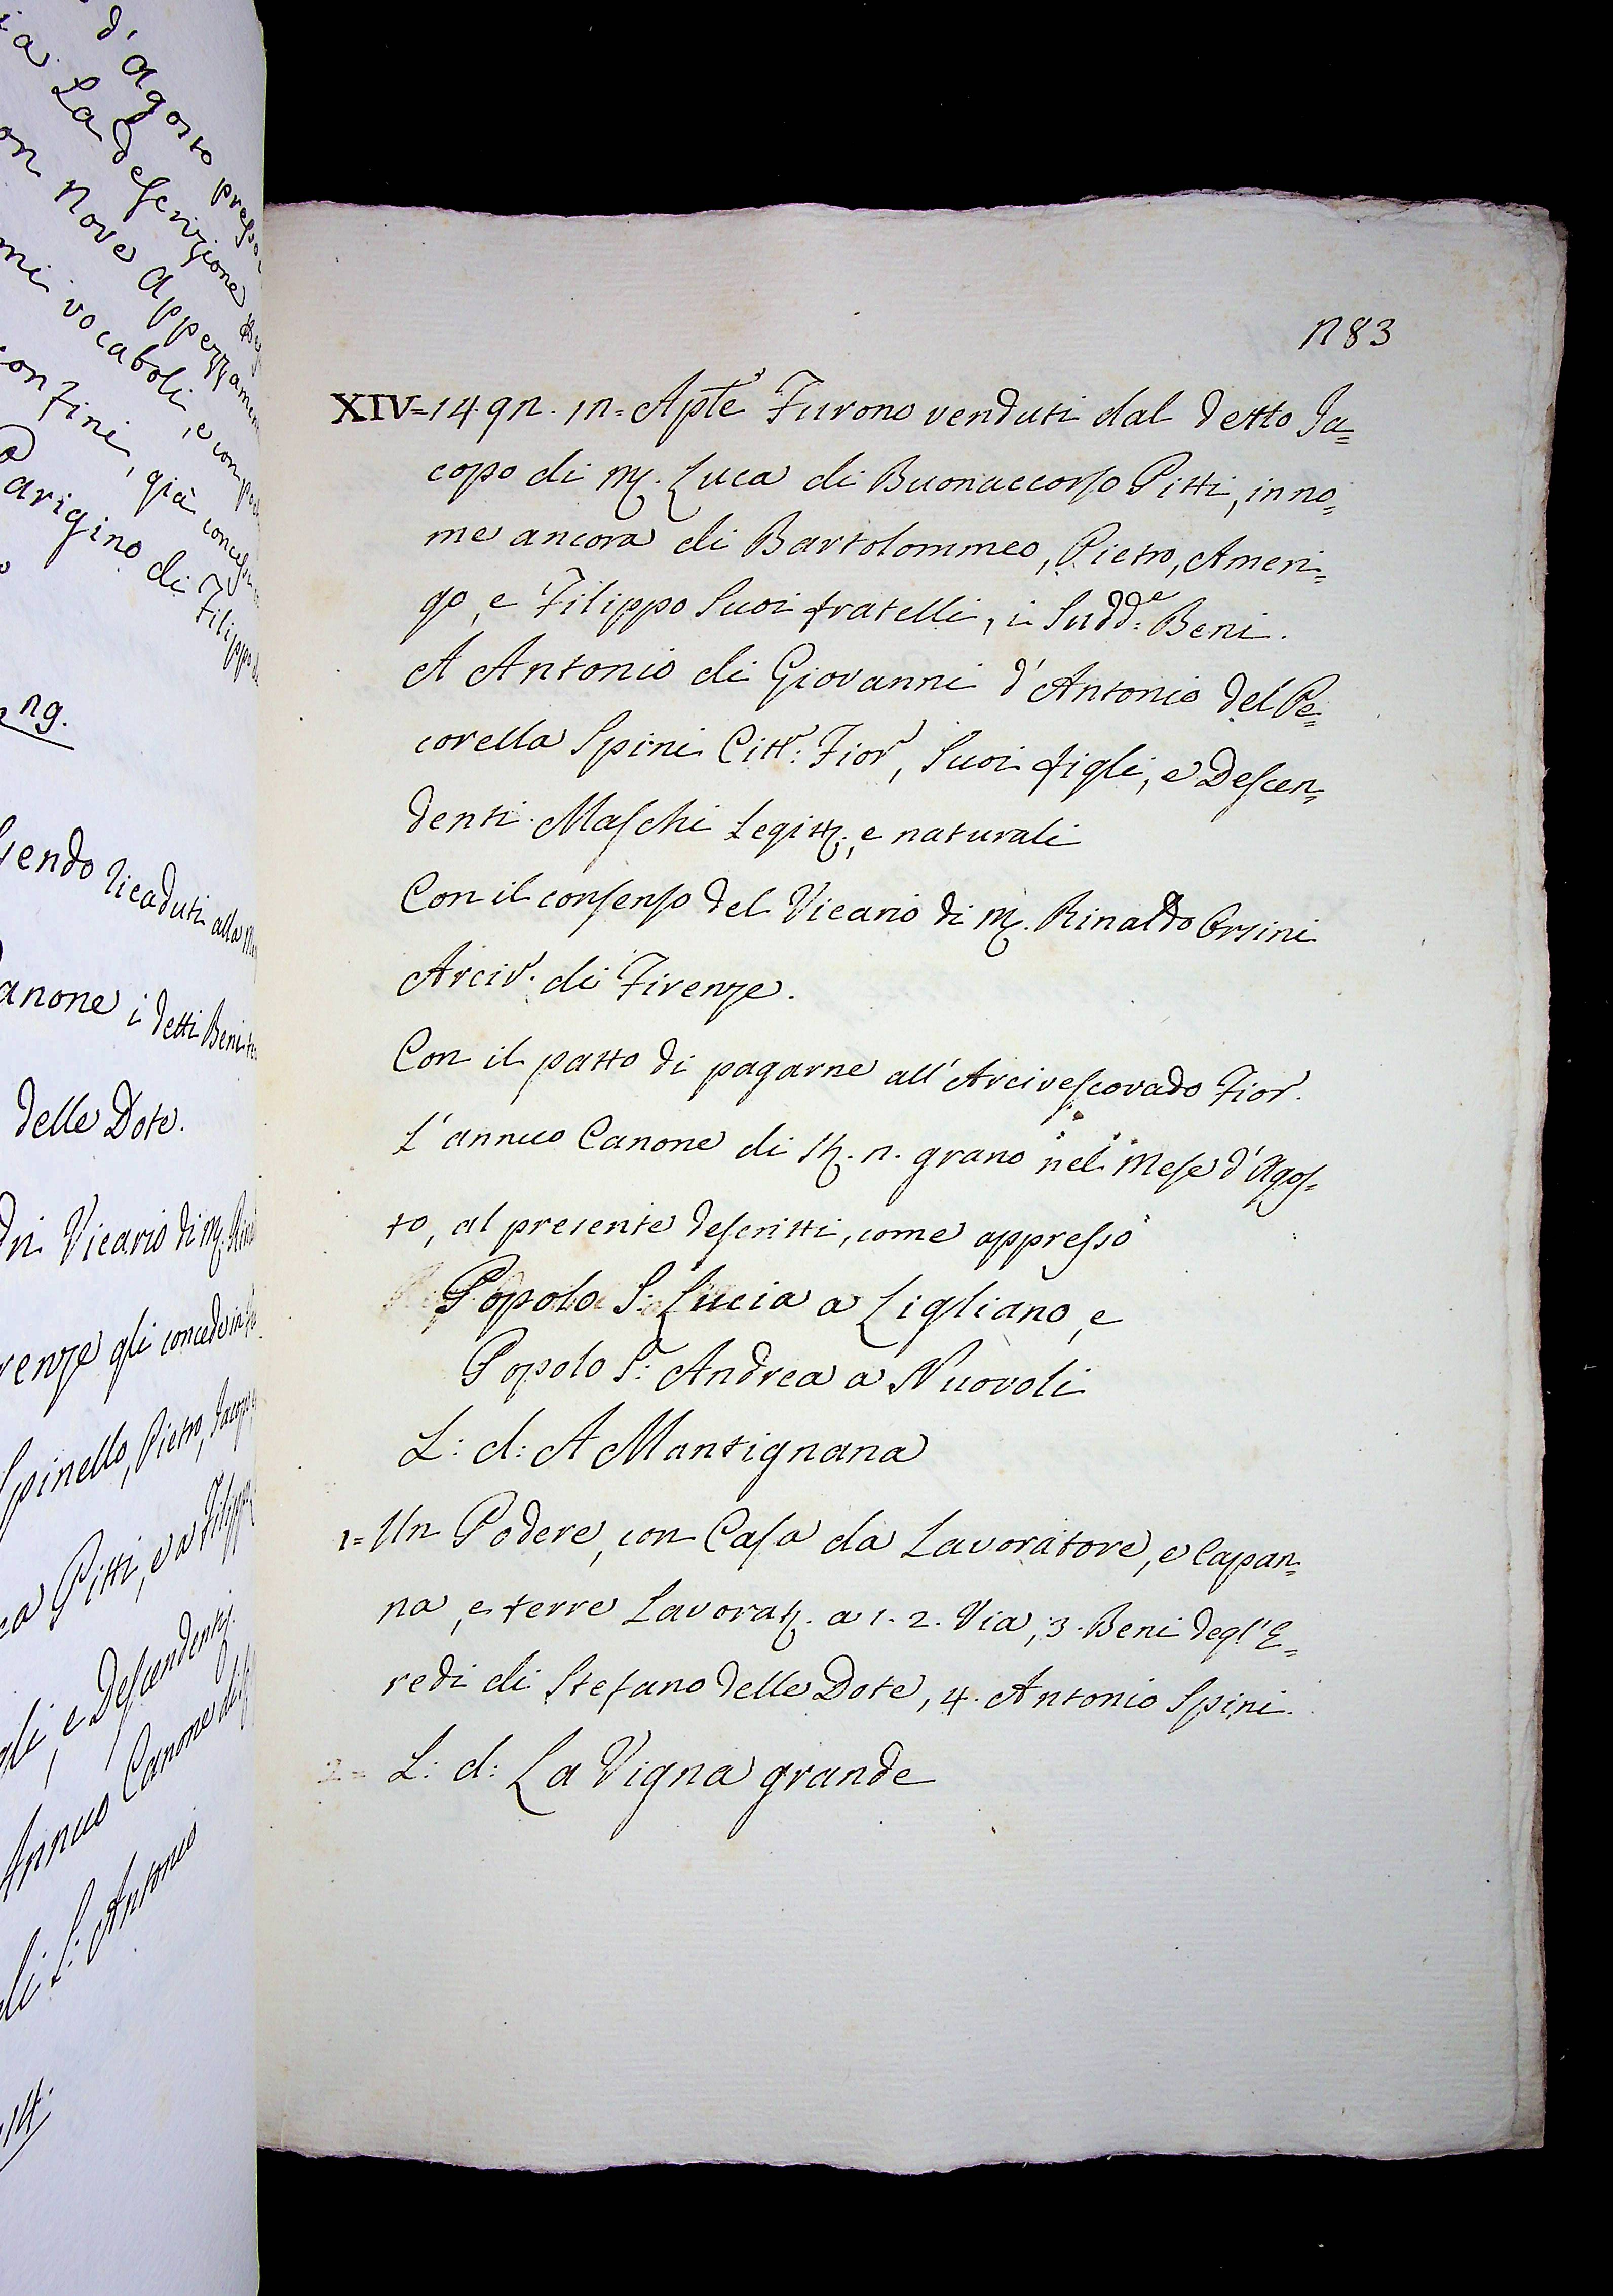 d'Agosto presso
La descrizione
on nove appezzamen
mi vocaboli, e con
confini, già conces
Parigino di Filippo
ng.
sendo ricaduti alla
anone i detti Beni
delle Dote.
Vicario di M.
renze gli concede in
Spinello, Pietro, Jacopo
Pitti, e a Filippo
e Descendenti
Annuo Canone di
S: Antonio
n83
XIV=14.9n. 1n= Aple Furono venduti dal detto Ja=
copo di M. Luca di Buonaccorso Pitti, in no=
me ancora di Bartolommeo, Pietro, Ameri=
go, e Filippo Suoi fratelli, i Sudd.e Beni.
A Antonio di Giovanni d'Antonio del Pe=
corella Spini Citt: Fior, Suoi figli, e Descen=
denti Maschi Legitt:, e naturali
Con il consenso del Vicario di M. Rinaldo Orsini
Arciv. di Firenze.
Con il patto di pagarne all'Arcivescovado Fior.
L'annuo Canone di St. n. grano nel Mese d'Agos=
to, al presente descritti, come appresso
Popolo S: Lucia a Ligliano, e
Popolo S: Andrea a Nuovoli
L: d: A Mantignana
1= Un Podere, con Casa da Lavoratore, e Capan=
na, e terre Lavorat. a 1. 2. Via, 3. Beni degl'E=
redi di Stefano delle Dote, 4. Antonio Spini.
2= L: d: La Vigna grande